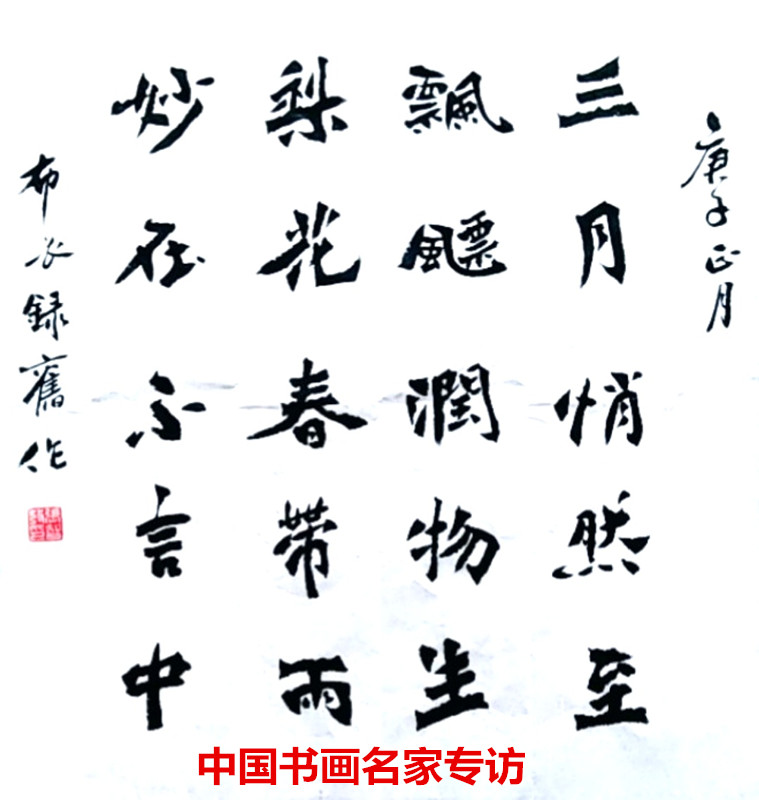 庚子正月
三月悄然至
飄飃潤物生
梨花春帶雨
妙在不言中
布衣録舊作
中国书画名家专访